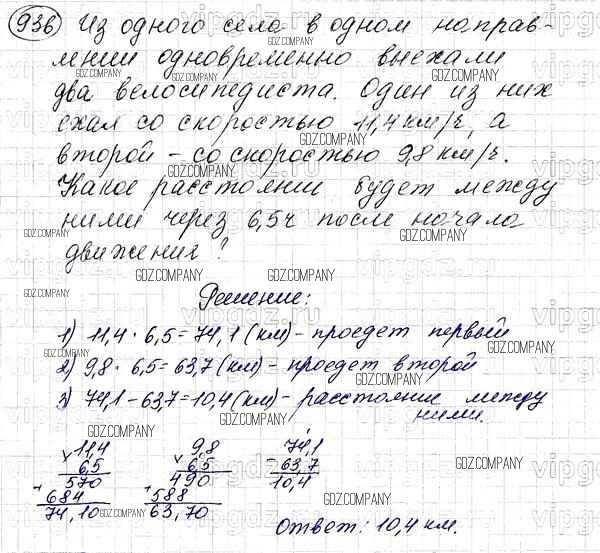 936 Из одного села в одном направ-
лении одновременно выехали
два велосипедиста. Один из них
ехал со скоростью 11,4 км/ч, а
второй – со скоростью 9,8 км/ч.
Какое расстояние будет между
ними через 6,5ч после начала
движения?
Решение:
1) 11,4 · 6,5 = 74,1 (км) – проедет первый
2) 9,8 · 6,5 = 63,7 (км) – проедет второй
3) 74,1 – 63,7 = 10,4 (км) – расстояние между
ними.
× 11,4 × 9,8 - 74,1
6,5 6,5 63,7
570 490 10,4
+ 684 + 588
74,10 63,70
Ответ: 10,4 км.
GDZ.COMPANY
vipgdz.ru